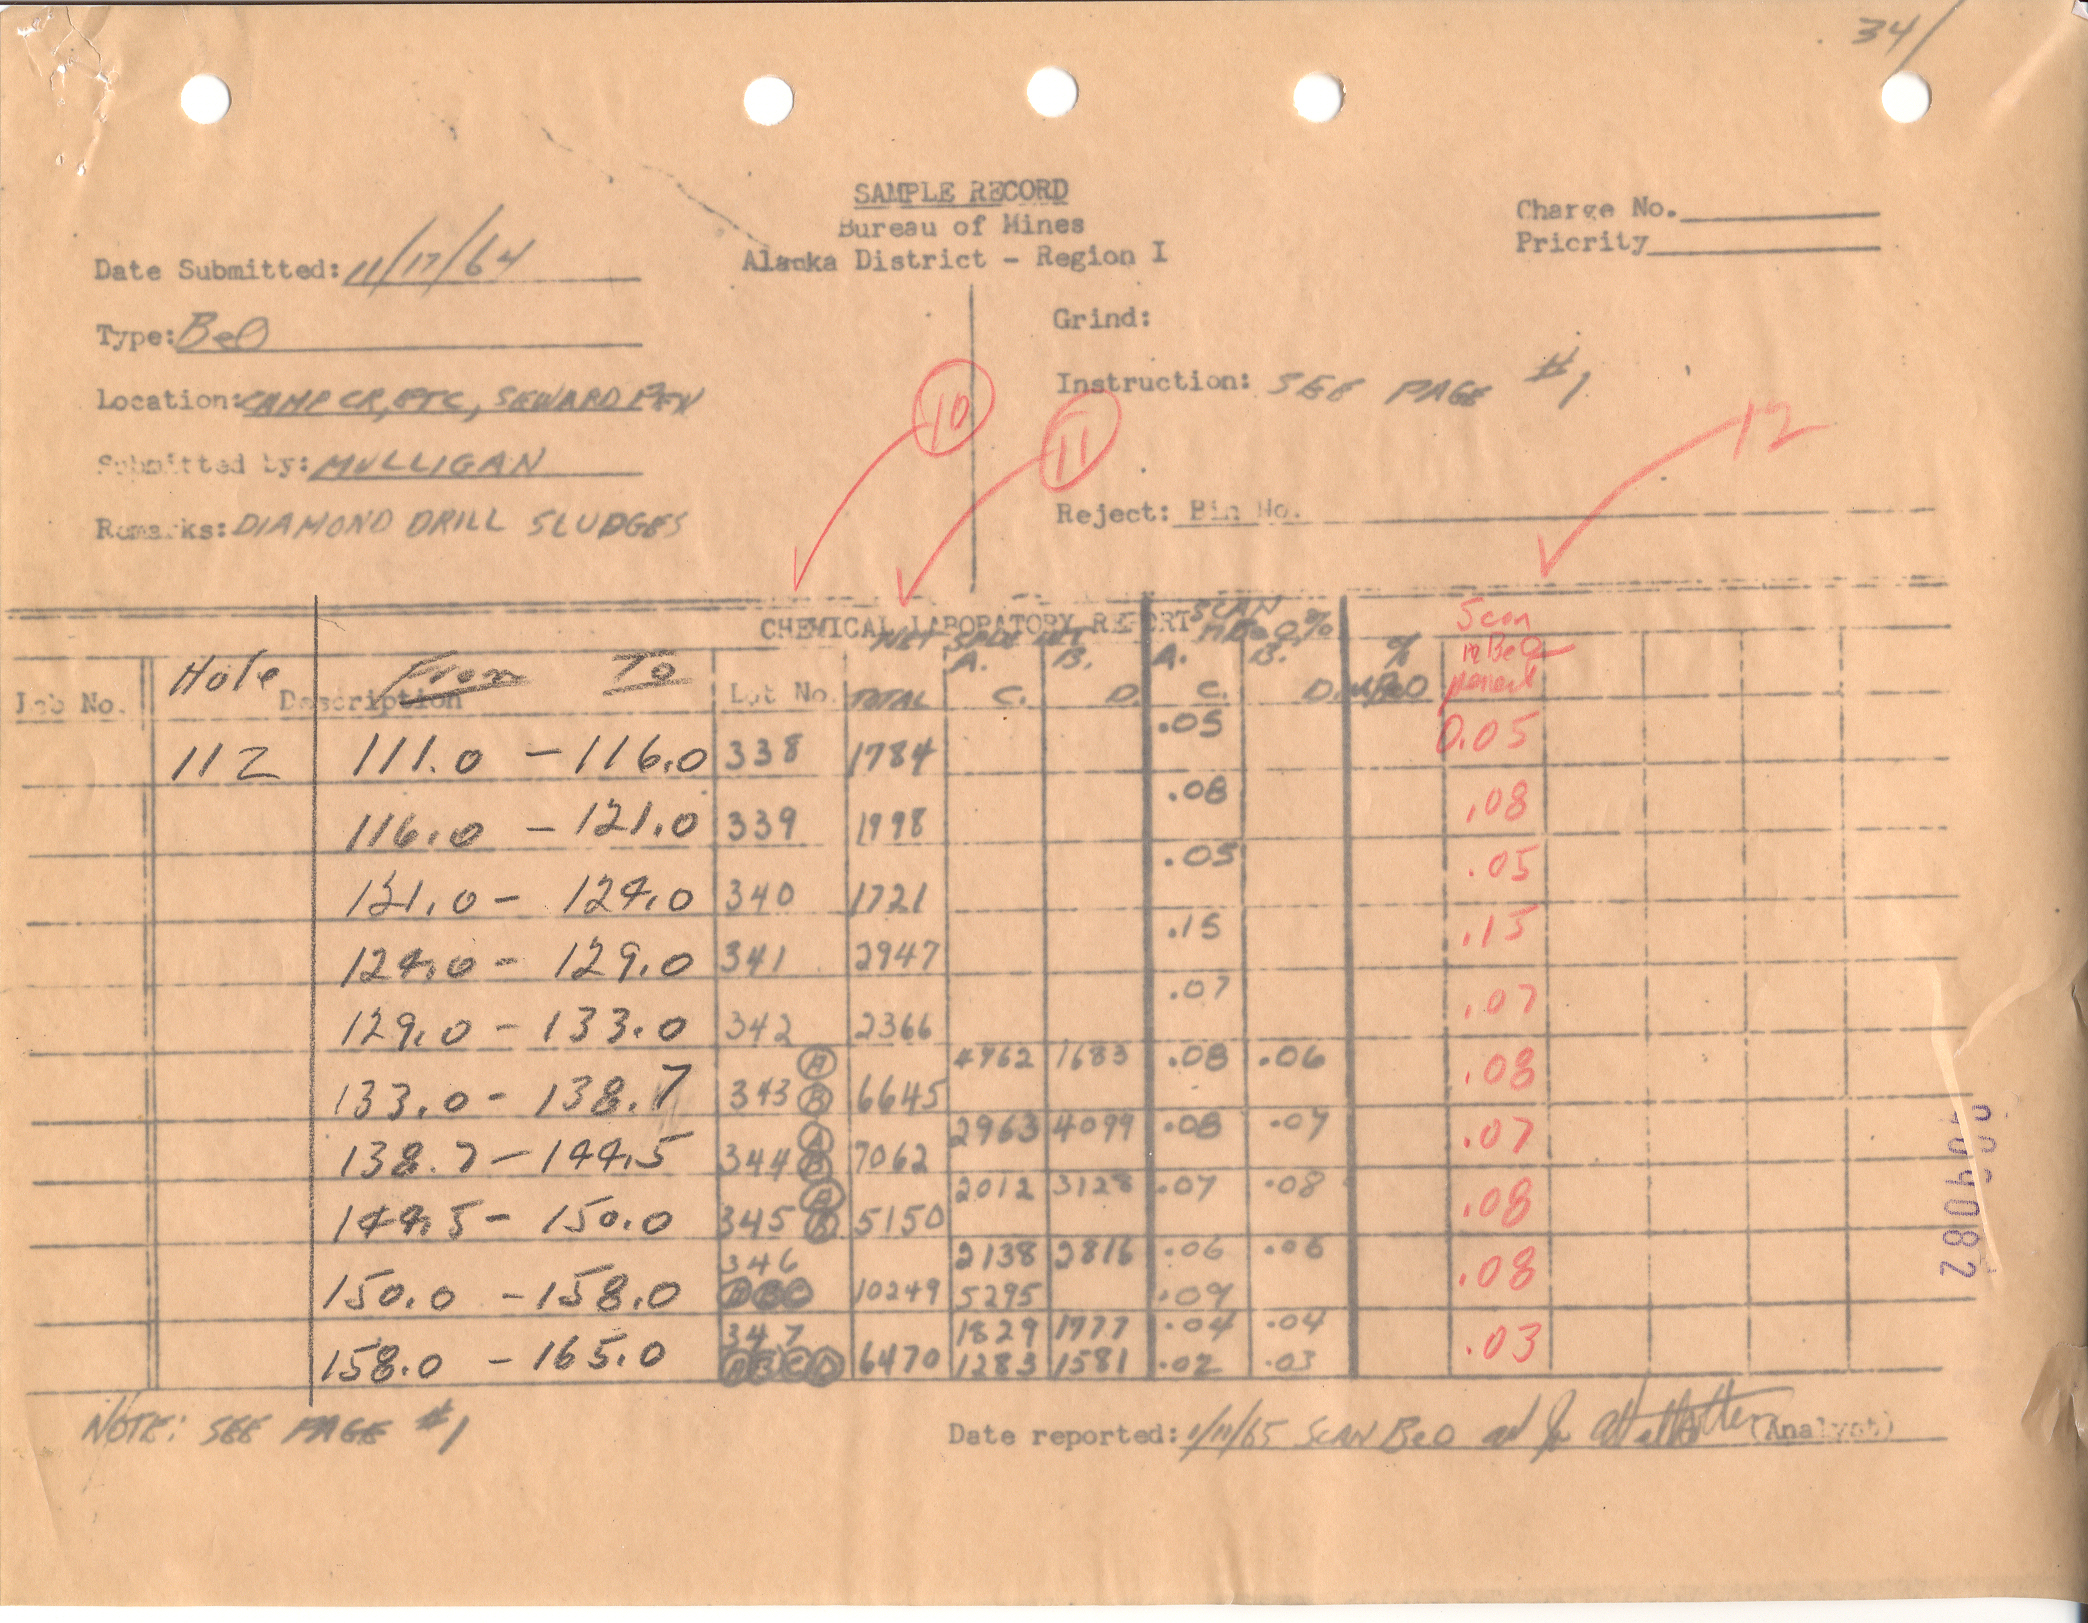 34/
SAMPLE RECORD
Bureau of Mines
Alaska District - Region I
Charge No.
Priority
Date Submitted: 11/17/64
Type: BeO
Location: CAMP CR, ETC, SEWARD PEN
Submitted by: MULLIGAN
Remarks: DIAMOND DRILL SLUDGES
Grind:
Instruction: SEE PAGE #1
Reject: Bin No.
10
11
12
CHEMICAL LABORATORY REPORT
NET SPLE WT SCAN BeO, %
A. B. A. B. % Scan
Hole From To BeO
Lab No. Description Lot No. TOTAL C. D. C. D. BeO percent
112 111.0 - 116.0 338 1784 .05 0.05
116.0 - 121.0 339 1998 .08 .08
121.0 - 124.0 340 1721 .05 .05
124.0 - 129.0 341 2947 .15 .15
129.0 - 133.0 342 2366 .07 .07
133.0 - 138.7 343 A B 6645 4962 1683 .08 .06 .08
138.7 - 144.5 344 A B 7062 2963 4099 .08 .07 .07
144.5 - 150.0 345 A B 5150 2012 3128 .07 .08 .08
346 2138 2816 .06 .06
150.0 - 158.0 A B C 10249 5295 .09 .08
347 1829 1777 .04 .04
158.0 - 165.0 A B C D 6470 1283 1581 .02 .03 .03
NOTE: SEE PAGE #1
Date reported: 1/11/65 SCAN BeO (Analyst)